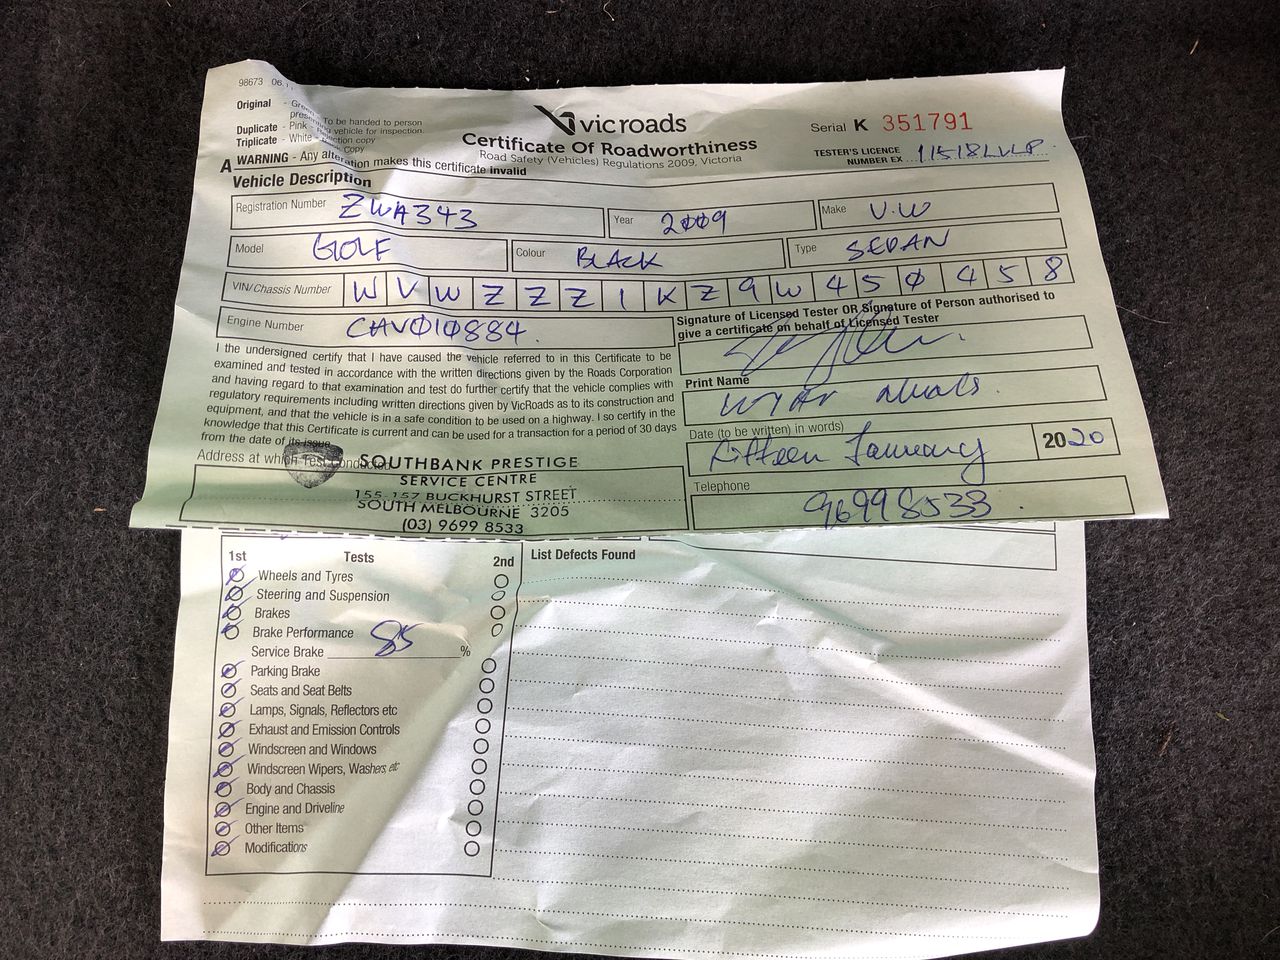 98673 06.1
Original - Gree
prese To be handed to person
Duplicate - Pink - ing vehicle for inspection.
Triplicate - White - ection copy
Copy
vicroads
Certificate Of Roadworthiness
Road Safety (Vehicles) Regulations 2009, Victoria
Serial K 351791
TESTER'S LICENCE
NUMBER EX
A WARNING - Any alteration makes this certificate invalid
Vehicle Description
Registration Number ZWA343 Year 2009 Make V.W
Model GOLF Colour BLACK Type SEDAN
VIN/Chassis Number W V W Z Z Z 1 K Z 9 W 4 5 0 4 5 8
Engine Number CAV010884.
Signature of Licensed Tester OR Signature of Person authorised to
give a certificate on behalf of Licensed Tester
I the undersigned certify that I have caused the vehicle referred to in this Certificate to be
examined and tested in accordance with the written directions given by the Roads Corporation
and having regard to that examination and test do further certify that the vehicle complies with
regulatory requirements including written directions given by VicRoads as to its construction and
equipment, and that the vehicle is in a safe condition to be used on a highway. I so certify in the
knowledge that this Certificate is current and can be used for a transaction for a period of 30 days
from the date of its issue.
Print Name
Date (to be written) in words)
Fifteen January 2020
Telephone
96998533.
Address at which Test Conducted
SOUTHBANK PRESTIGE
SERVICE CENTRE
155-157 BUCKHURST STREET
SOUTH MELBOURNE 3205
(03) 9699 8533
1st Tests 2nd
Wheels and Tyres
Steering and Suspension
Brakes
Brake Performance
Service Brake 85 %
Parking Brake
Seats and Seat Belts
Lamps, Signals, Reflectors etc
Exhaust and Emission Controls
Windscreen and Windows
Windscreen Wipers, Washers, etc
Body and Chassis
Engine and Driveline
Other Items
Modifications
List Defects Found